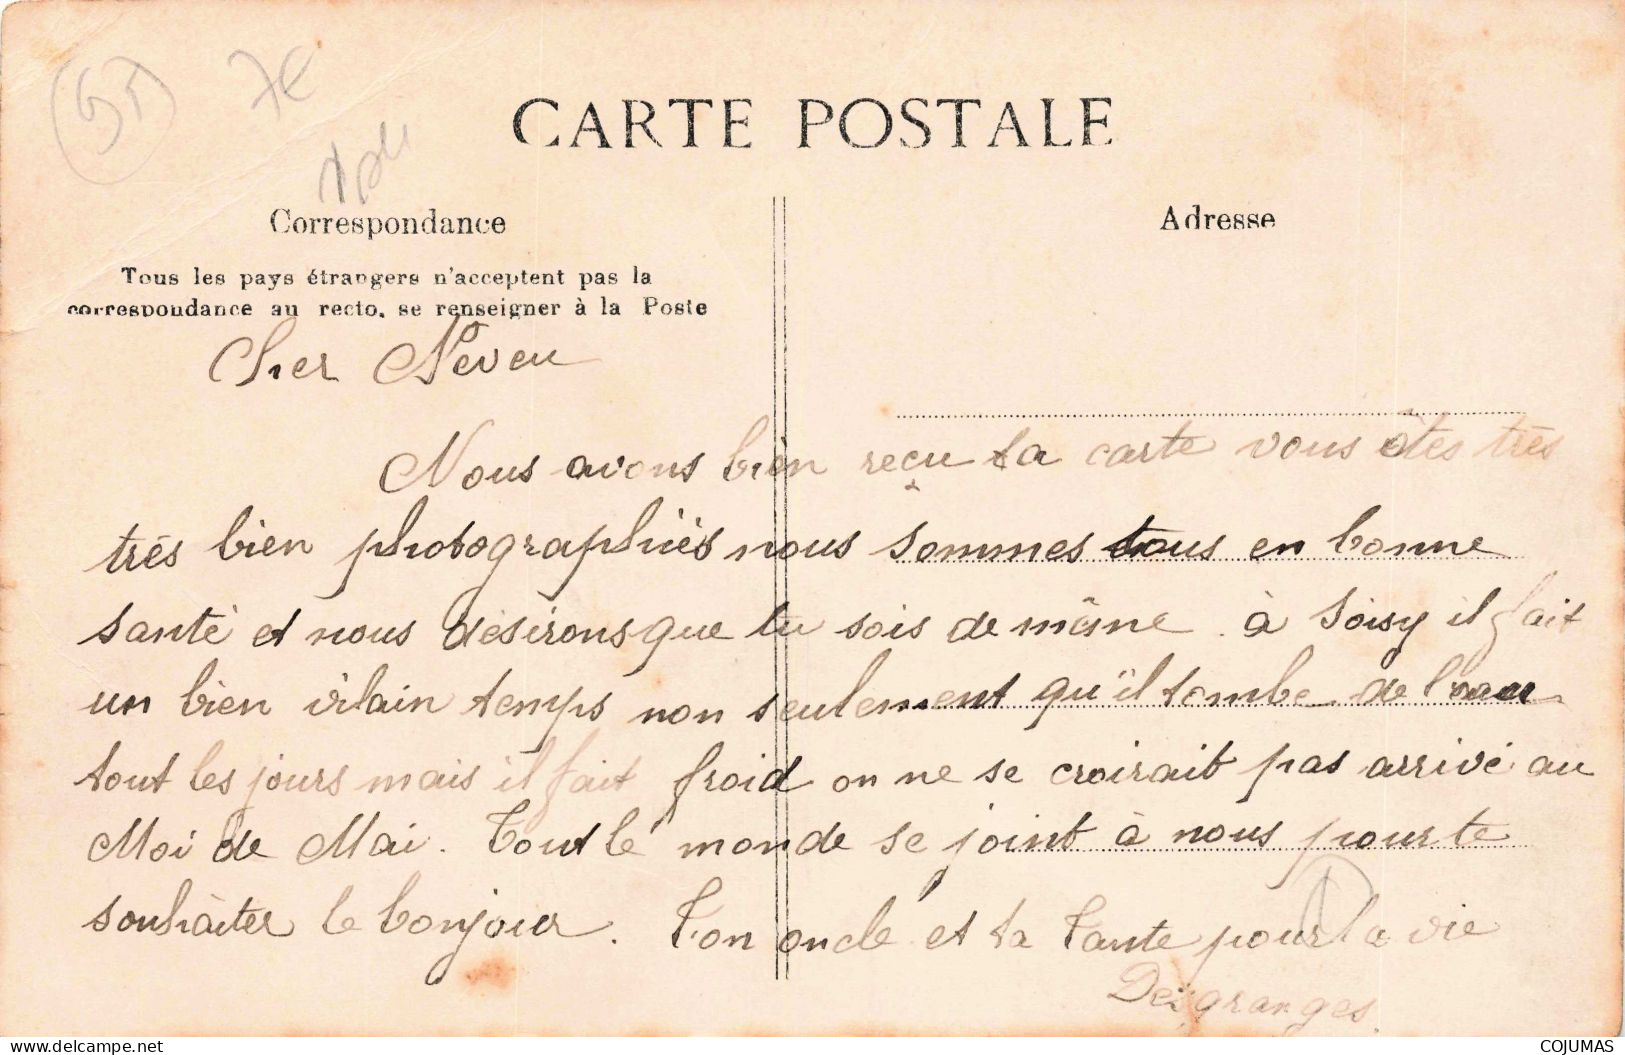 7€
CARTE POSTALE
Correspondance
Adresse
Tous les pays étrangers n'acceptent pas la
correspondance au recto, se renseigner à la Poste
Cher Neveu
Nous avons bien reçu ta carte vous êtes très
très bien photographiés nous sommes tous en bonne
santé et nous désirons que tu sois de même . à Soisy il fait
un bien vilain temps non seulement qu'il tombe de l'eau
tout les jours mais il fait froid on ne se croirait pas arrivé au
Moi de Mai . Tout le monde se joint à nous pour te
souhaiter le bonjour . Ton oncle et ta Tante pour la vie
Desgranges
www.delcampe.net
COJUMAS